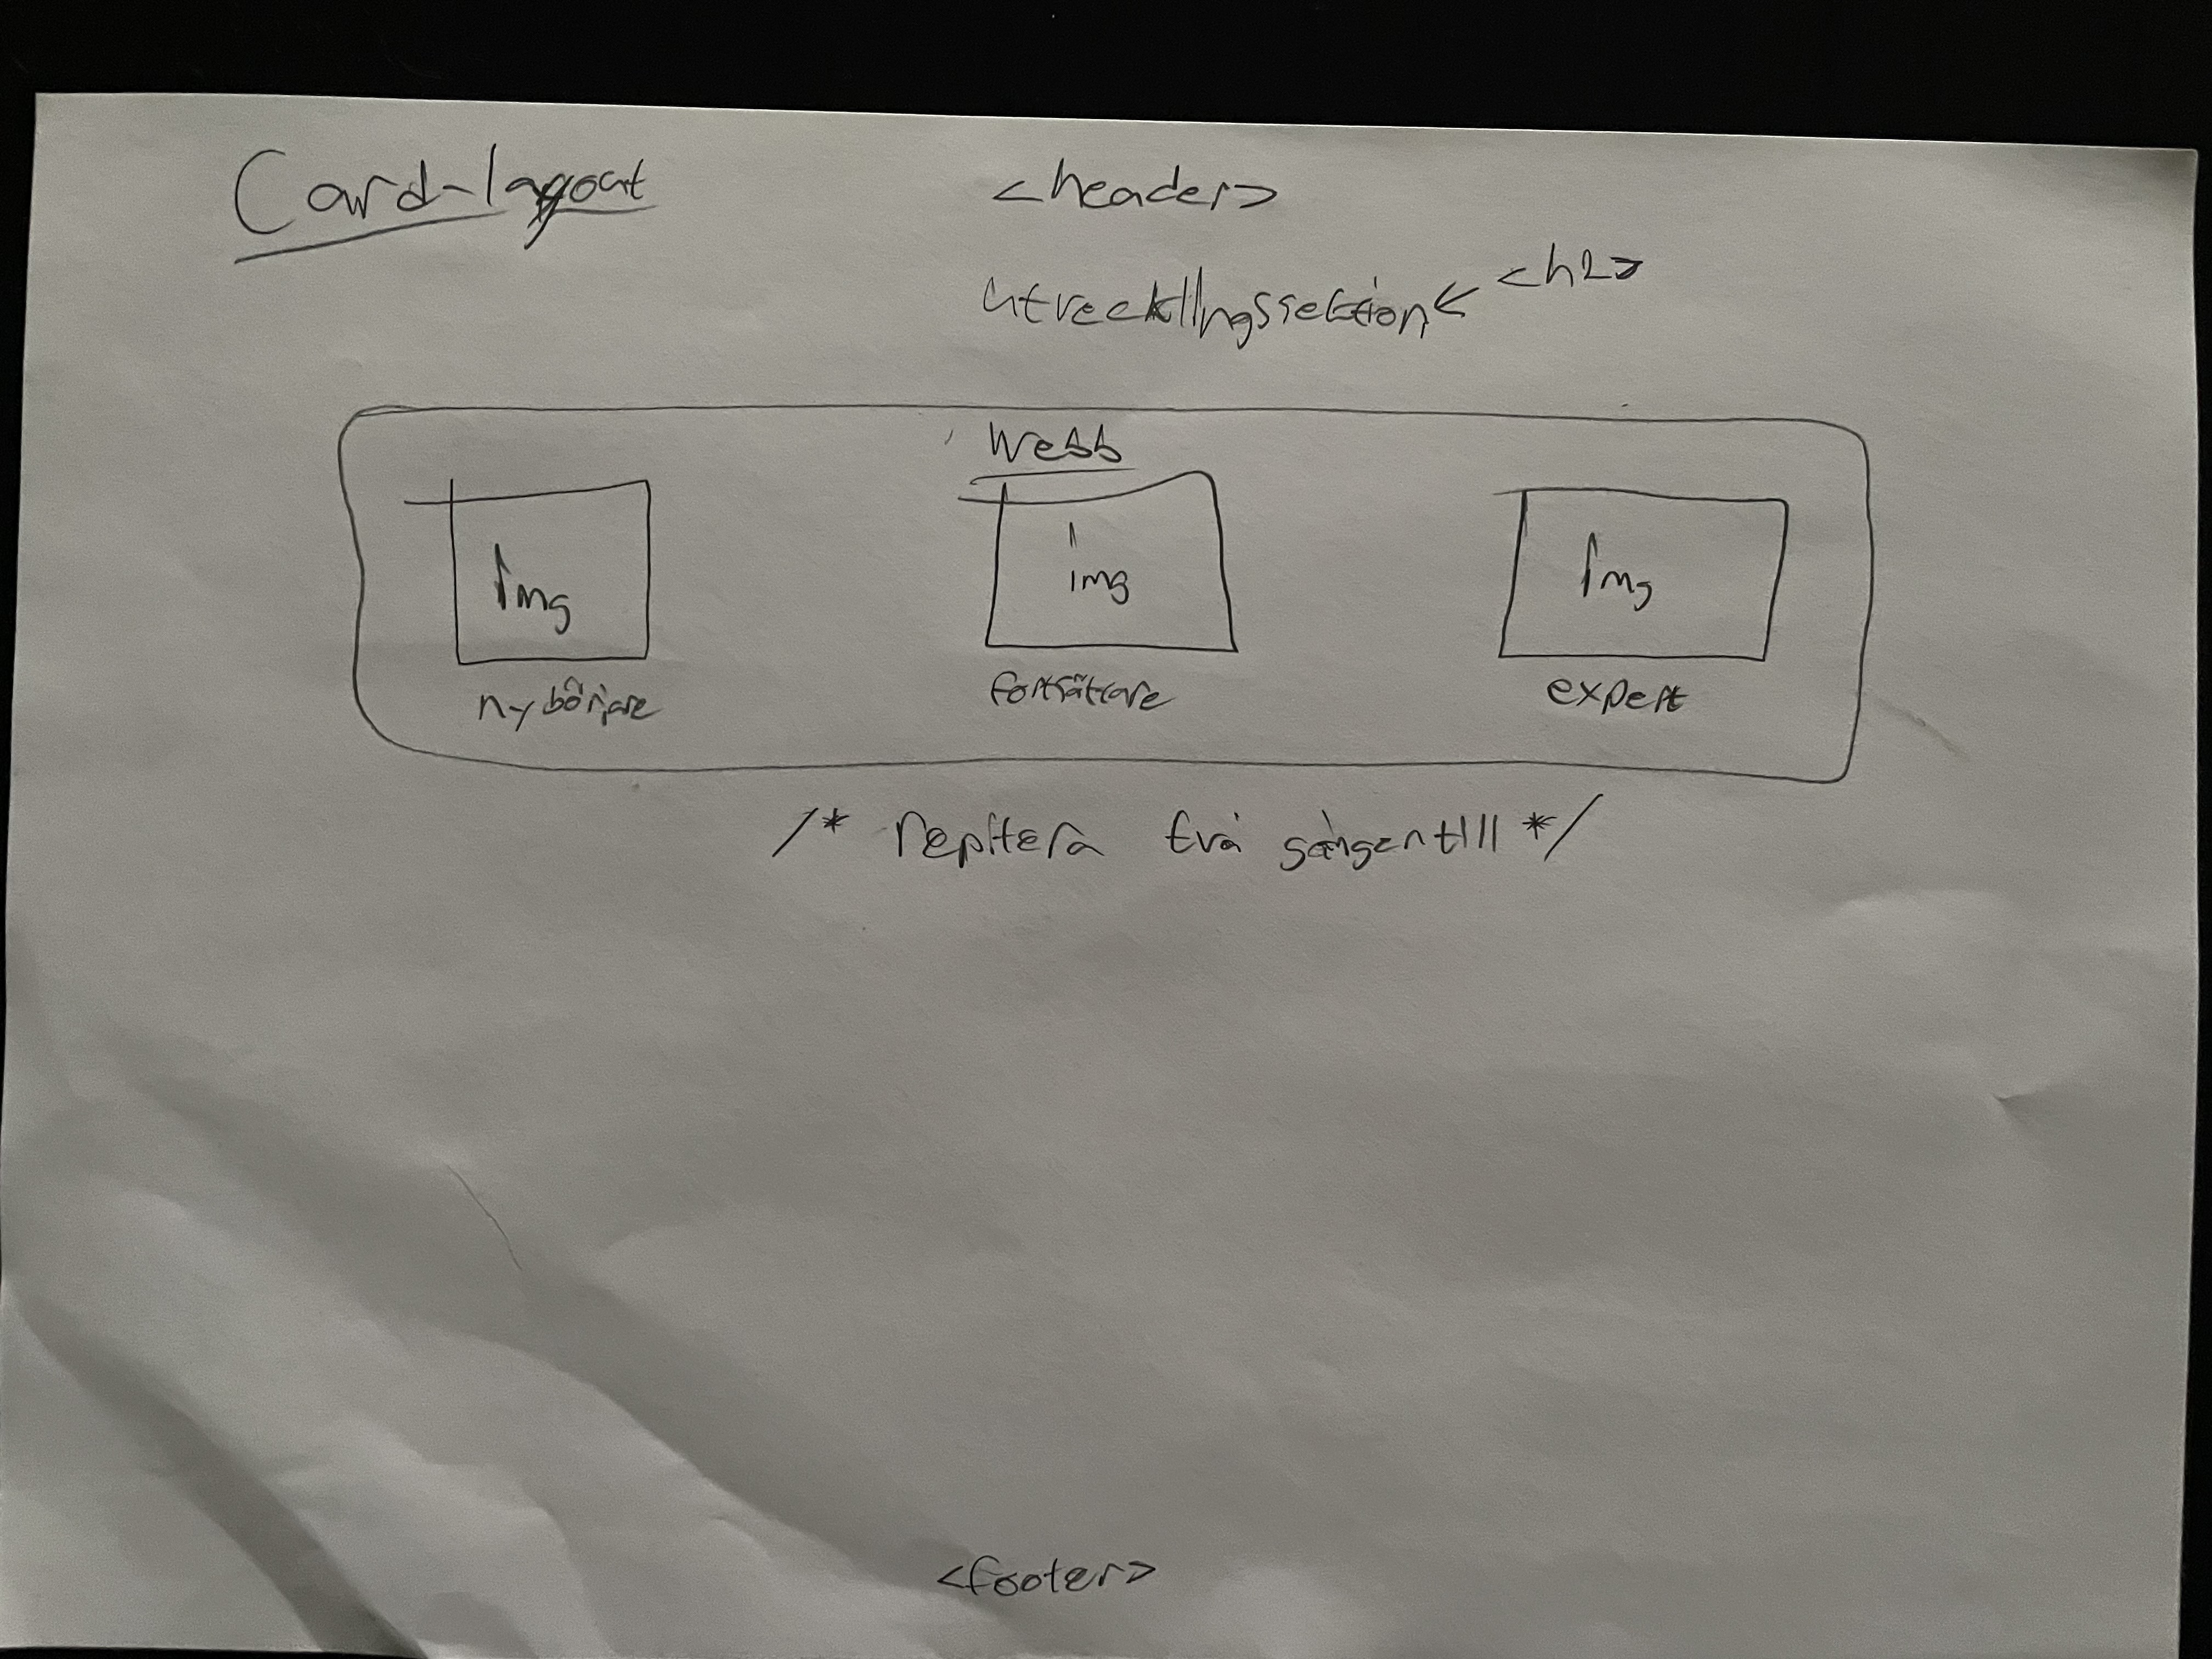 Card-layout
<header>
utvecklingssektion < <h2>
webb
Img
img
Img
nybörjare
fortsättare
expert
/* repitera två gånger till */
<footer>